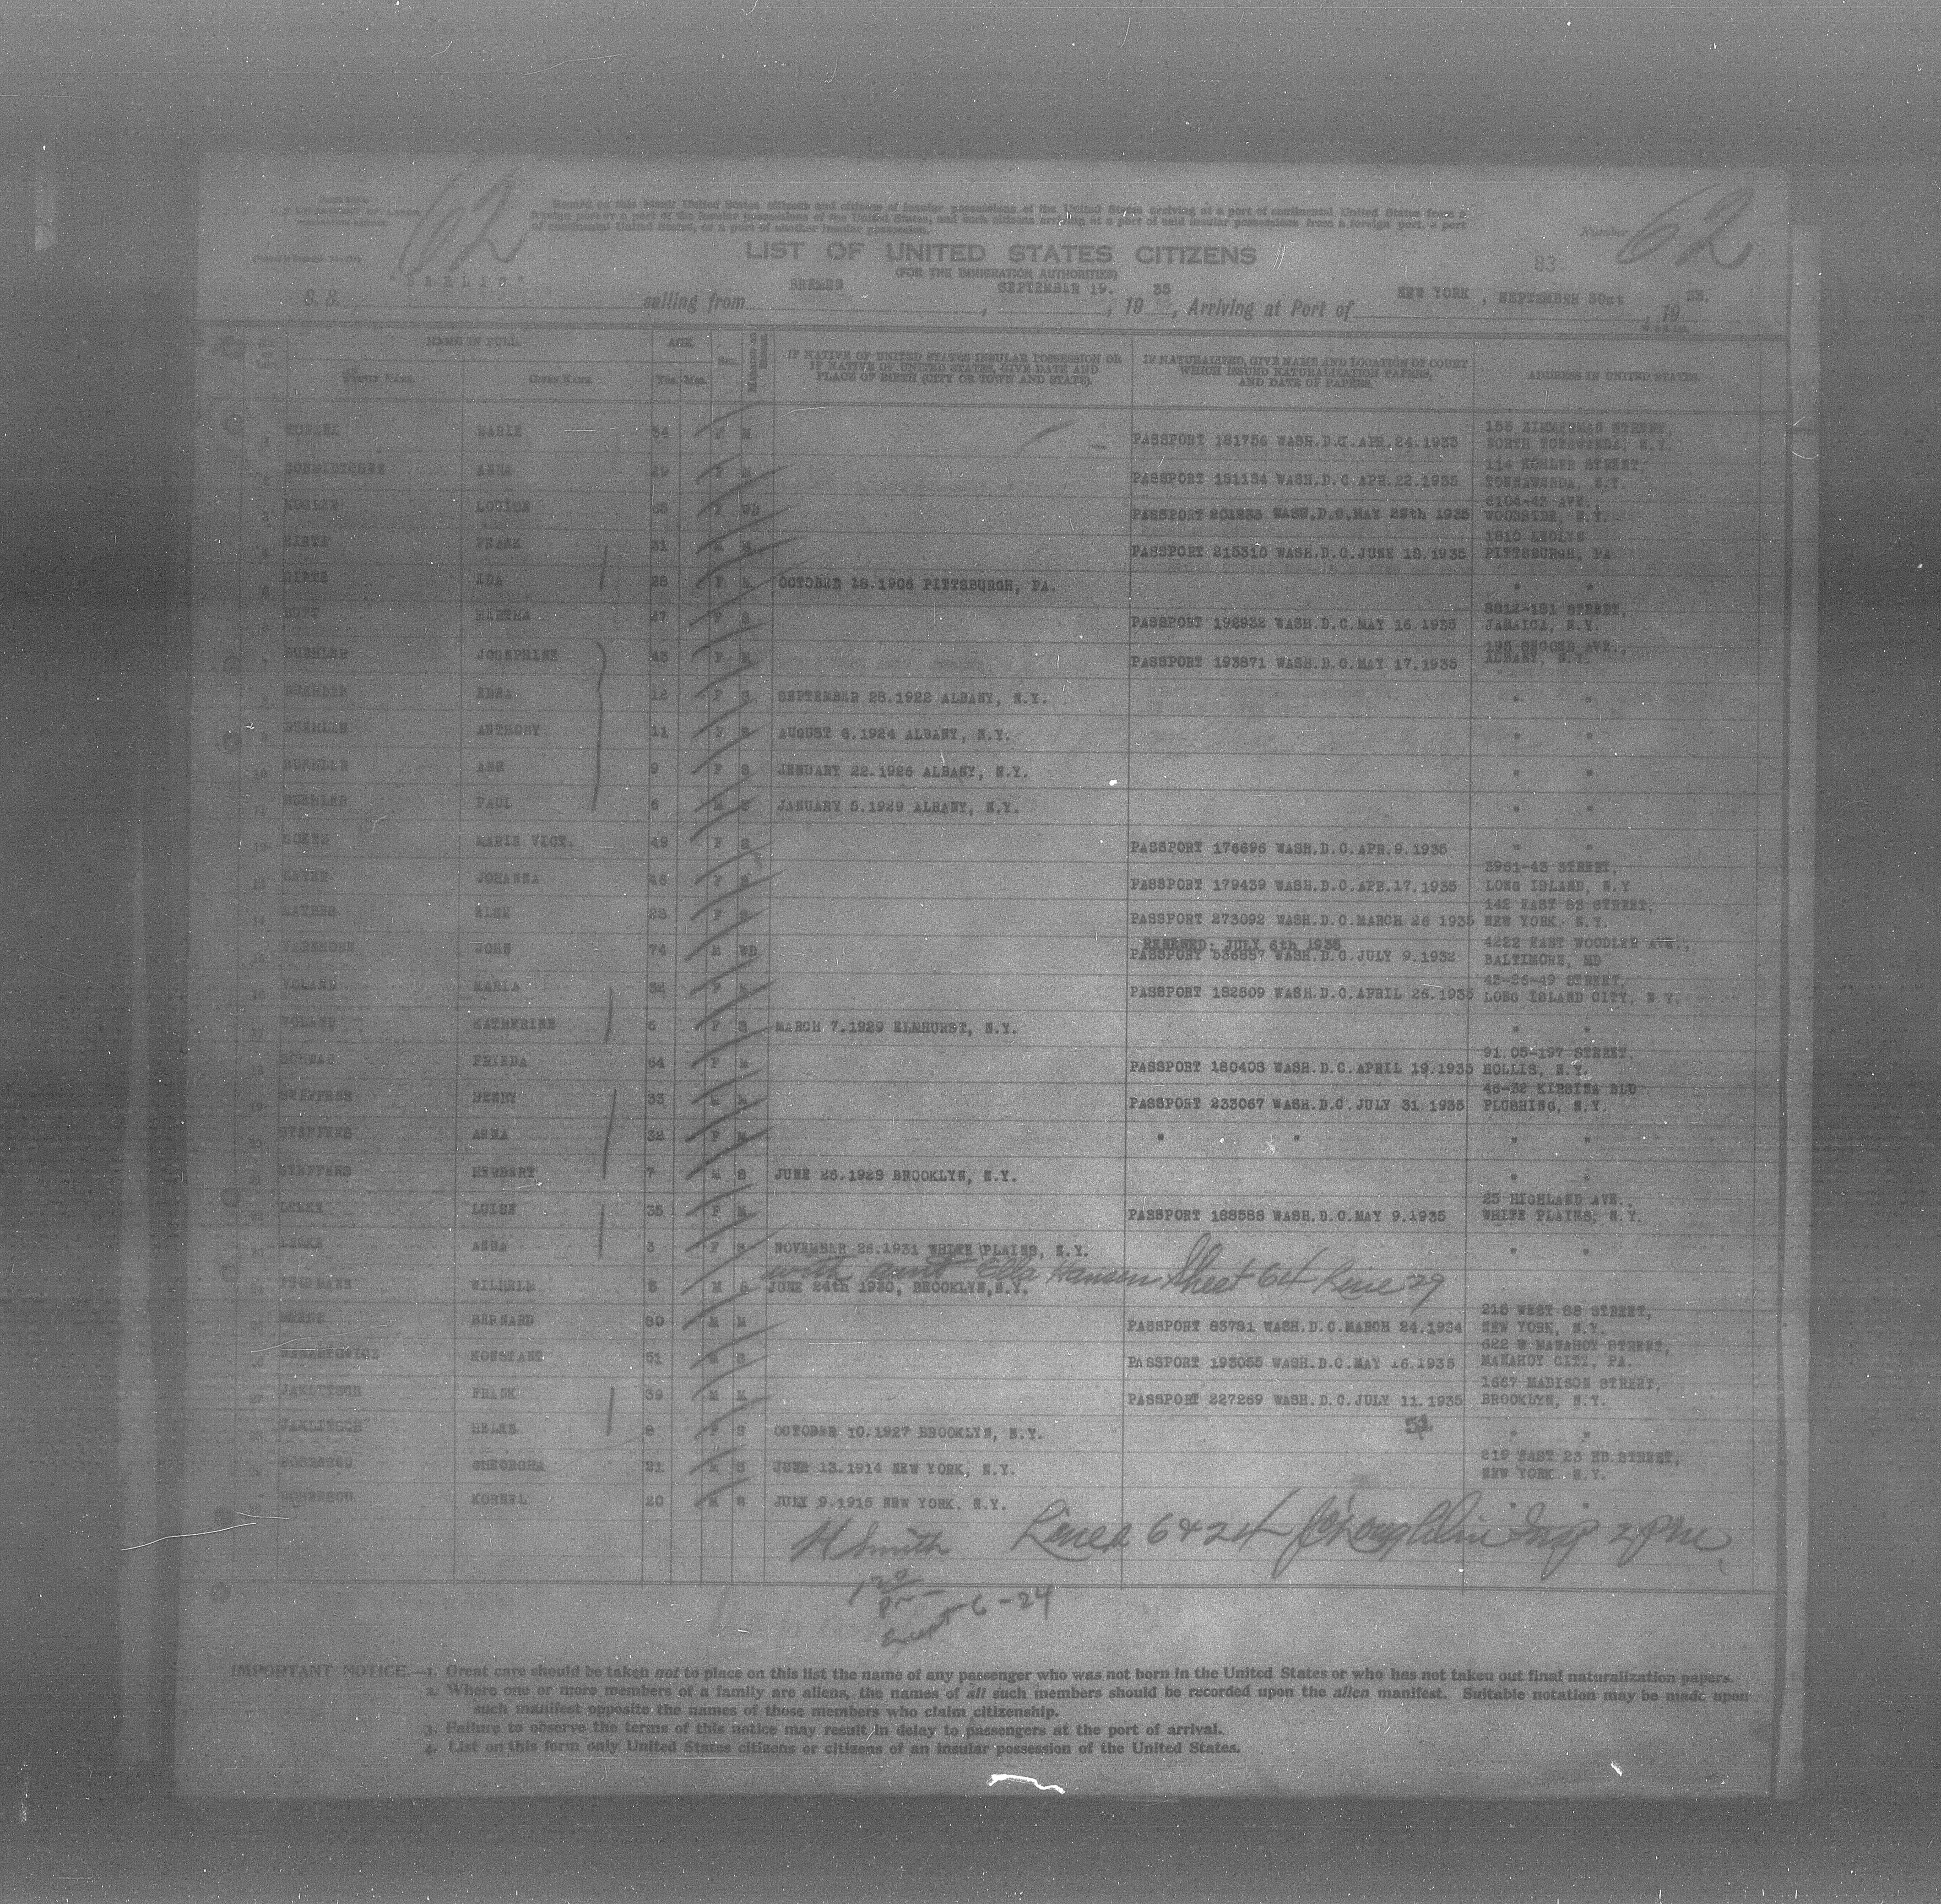 62
Record on this blank United States citizens and citizens of insular possessions of the United States arriving at a port of continental United States from a
foreign port or a port of the insular possessions of the United States, and such citizens arriving at a port of said insular possessions from a foreign port, a port
of continental United States, or a port of another insular possession.
Number 62
LIST OF UNITED STATES CITIZENS
(FOR THE IMMIGRATION AUTHORITIES)
83
S. S. "BERLIN" sailing from BREMEN, SEPTEMBER 19., 19 35, Arriving at Port of NEW YORK, SEPTEMBER 30st, 19 35.
No. on List NAME IN FULL. AGE. Sex. Married or Single. IF NATIVE OF UNITED STATES INSULAR POSSESSION OR IF NATIVE OF UNITED STATES, GIVE DATE AND PLACE OF BIRTH (CITY OR TOWN AND STATE). IF NATURALIZED, GIVE NAME AND LOCATION OF COURT WHICH ISSUED NATURALIZATION PAPERS, AND DATE OF PAPERS. ADDRESS IN UNITED STATES.
Family Name. Given Name. Yrs. Mos.
1 MARIE 34 F M PASSPORT 181756 WASH.D.C.APR.24.1935 155 ZIMMERMAN STREET, NORTH TONAWANDA, N.Y.
2 SCHMIDTCHEN ANNA 29 F M PASSPORT 181184 WASH.D.C.APR.22.1935 114 KOHLER STREET, TONNAWANDA, N.Y.
3 KUGLER LOUISE 65 F WD PASSPORT 201235 WASH.D.C.MAY 29th 1935 6104-43 AVE., WOODSIDE, N.Y.
4 HIRTZ FRANK 31 M M PASSPORT 215310 WASH.D.C.JUNE 18.1935 1810 LEOLYN PITTSBURGH, PA
5 HIRTZ IDA 28 F M OCTOBER 18.1906 PITTSBURGH, PA. " "
6 MARTHA 27 F S PASSPORT 192932 WASH.D.C.MAY 16.1935 8812-181 STREET, JAMAICA, N.Y.
7 BUEHLER JOSEPHINE 43 F M PASSPORT 193871 WASH.D.C.MAY 17.1935 193 SECOND AVE., ALBANY, N.Y.
8 BUEHLER EDNA 12 F S SEPTEMBER 28.1922 ALBANY, N.Y. " "
9 BUEHLER ANTHONY 11 F S AUGUST 6.1924 ALBANY, N.Y. " "
10 BUEHLER ANN 9 F S JENUARY 22.1926 ALBANY, N.Y. " "
11 BUEHLER PAUL 6 M S JANUARY 5.1929 ALBANY, N.Y. " "
12 GOETZ MARIE VICT. 49 F S PASSPORT 176696 WASH.D.C.APR.9.1935 " "
13 BAYER JOHANNA 46 F S PASSPORT 179439 WASH.D.C.APR.17.1935 3961-43 STREET, LONG ISLAND, N.Y
14 MATHES ELSE 28 F S PASSPORT 273092 WASH.D.C.MARCH 26 1935 142 EAST 83 STREET, NEW YORK. N.Y.
15 VANNHORN JOHN 74 M WD RENEWED: JULY 6th 1935 PASSPORT 536857 WASH.D.C.JULY 9.1932 4222 EAST WOODLER AVE., BALTIMORE, MD
16 VOLAND MARIA 32 F M PASSPORT 182809 WASH.D.C.APRIL 26.1935 43-26-49 STREET, LONG ISLAND CITY, N.Y.
17 VOLAND KATHERINE 6 F S MARCH 7.1929 ELMHURST, N.Y. " "
18 SCHWAB FRIEDA 64 F M PASSPORT 180408 WASH.D.C.APRIL 19.1935 91.05-197 STREET. HOLLIS, N.Y.
19 STEFFENS HENRY 33 M M PASSPORT 233067 WASH.D.C.JULY 31.1935 46-32 KISSINA BLD FLUSHING, N.Y.
20 STEFFENS ANNA 32 F M " " " "
21 STEFFENS HERBERT 7 M S JUNE 26.1928 BROOKLYN, N.Y. " "
22 LEMKE LUISE 35 F M PASSPORT 188588 WASH.D.C.MAY 9.1935 25 HIGHLAND AVE., WHITE PLAINS, N.Y.
23 LEMKE ANNA 3 F S NOVEMBER 26.1931 WHITE PLAINS, N.Y. " "
with aunt Ella Hansen Sheet 64 Line 29
24 WILHELM 5 M S JUNE 24th 1930, BROOKLYN,N.Y.
25 MENNE BERNARD 50 M M PASSPORT 83781 WASH.D.C.MARCH 24.1934 215 WEST 88 STREET, NEW YORK, N.Y.
26 KONSTANT 51 M S PASSPORT 193055 WASH.D.C.MAY 16.1935 622 W MANAHOY STREET, MANAHOY CITY, PA.
27 JAKLITSCH FRANK 39 M M PASSPORT 227269 WASH.D.C.JULY 11.1935 1667 MADISON STREET, BROOKLYN, N.Y.
28 JAKLITSCH HELEN 8 F S OCTOBER 10.1927 BROOKLYN, N.Y. 51 " "
29 GHEORGHA 21 M S JUNE 13.1914 NEW YORK, N.Y. 219 EAST 23 RD.STREET, NEW YORK. N.Y.
30 KORNEL 20 M S JULY 9.1915 NEW YORK. N.Y. " "
H Smith Lines 6 & 24 J O'Loughlin Insp 2 PM.
1 20 Pm
Except 6-24
IMPORTANT NOTICE.—1. Great care should be taken not to place on this list the name of any passenger who was not born in the United States or who has not taken out final naturalization papers.
2. Where one or more members of a family are aliens, the names of all such members should be recorded upon the alien manifest. Suitable notation may be made upon
such manifest opposite the names of those members who claim citizenship.
3. Failure to observe the terms of this notice may result in delay to passengers at the port of arrival.
4. List on this form only United States citizens or citizens of an insular possession of the United States.